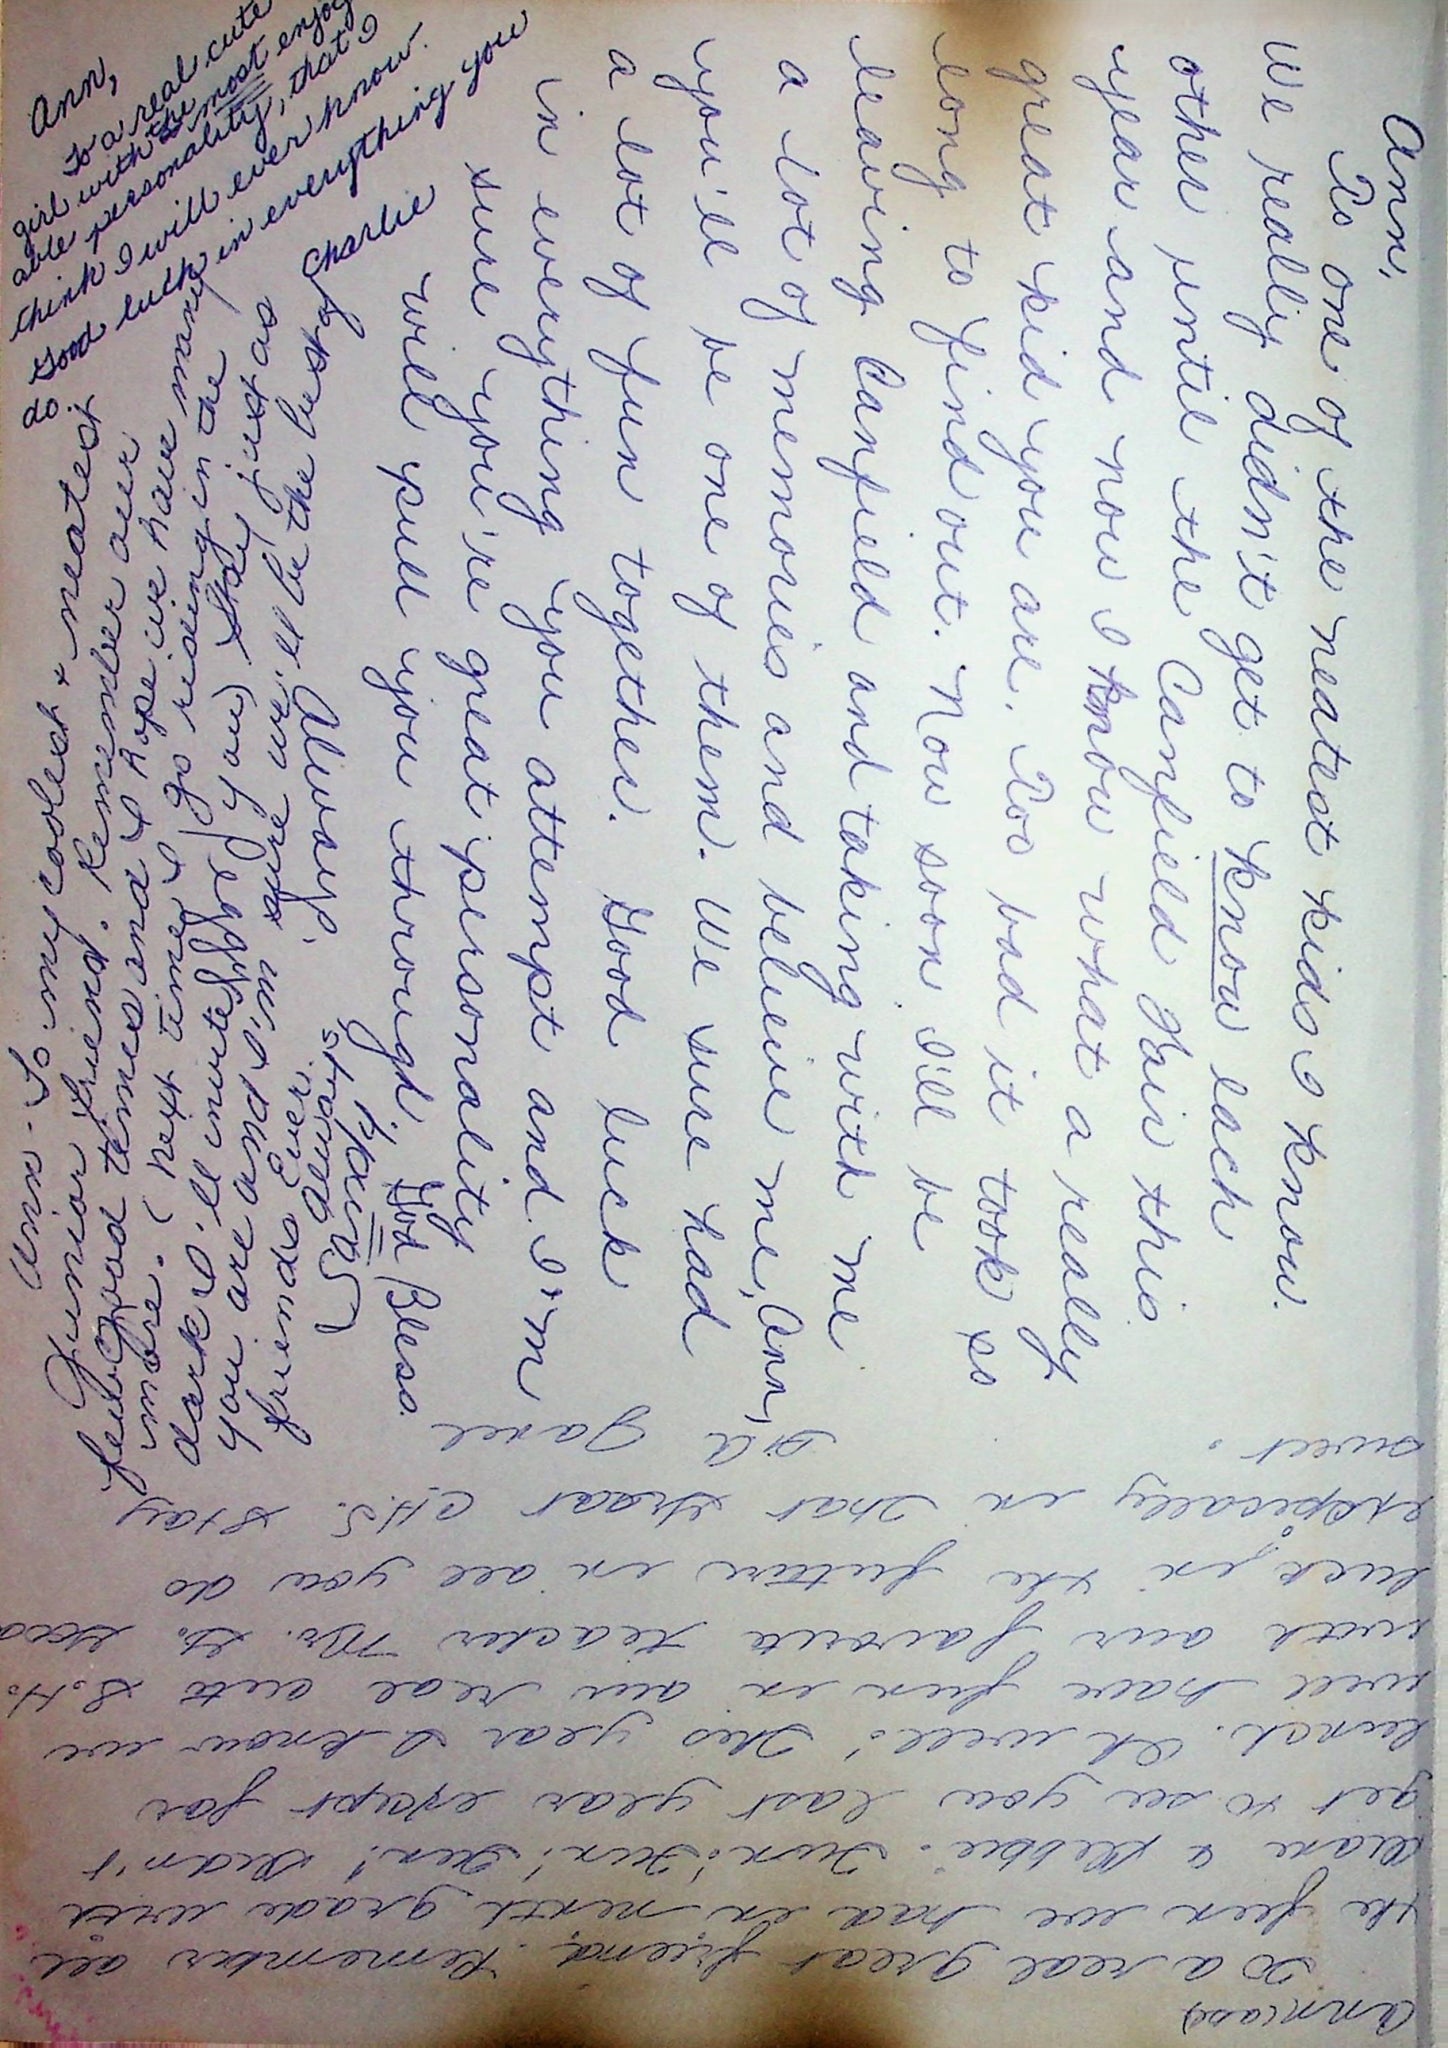 Ann,
To a real cute
girl with the most enjoy
able personality, that I
think I will ever know.
Good luck in everything you
do.
Charlie
Ann,
To one of the neatest kids I know.
We really didn't get to know each
other until the Canfield Fair this
year and now I know what a really
great kid you are. Too bad it took so
long to find out. Now soon I'll be
leaving Canfield and taking with me
a lot of memories and believe me, Ann,
you'll be one of them. We sure had
a lot of fun together. Good luck
in everything you attempt and I'm
sure you're great personality
will pull you through.
God Bless.
Always,
Ann - To my coolest & neatest
Junior friend. Remember our
few good times and I hope we have many
more. (Next time I go riding in the
dark I'll invite you) Stay just as
you are and I'm sure we'll be the best of
friends Ever
Always,
Ann
To a real great friend. Remember all
the fun we had in ninth grade with
& Debbie. Fun! Fun! Fun! Didn't
get to see you last year except for
lunch. Oh well! This year I know we
will have fun in our real cute S.H.
with our favorite teacher Mr. G. Good
luck in the future in all you do
especially in that great C.H.S. Stay
sweet.
Janel